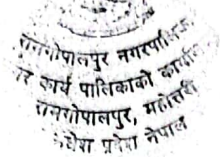 रामगोपालपुर नगरपालिका
नगर कार्य पालिकाको कार्यालय
रामगोपालपुर, महोत्तरी
मधेश प्रदेश नेपाल